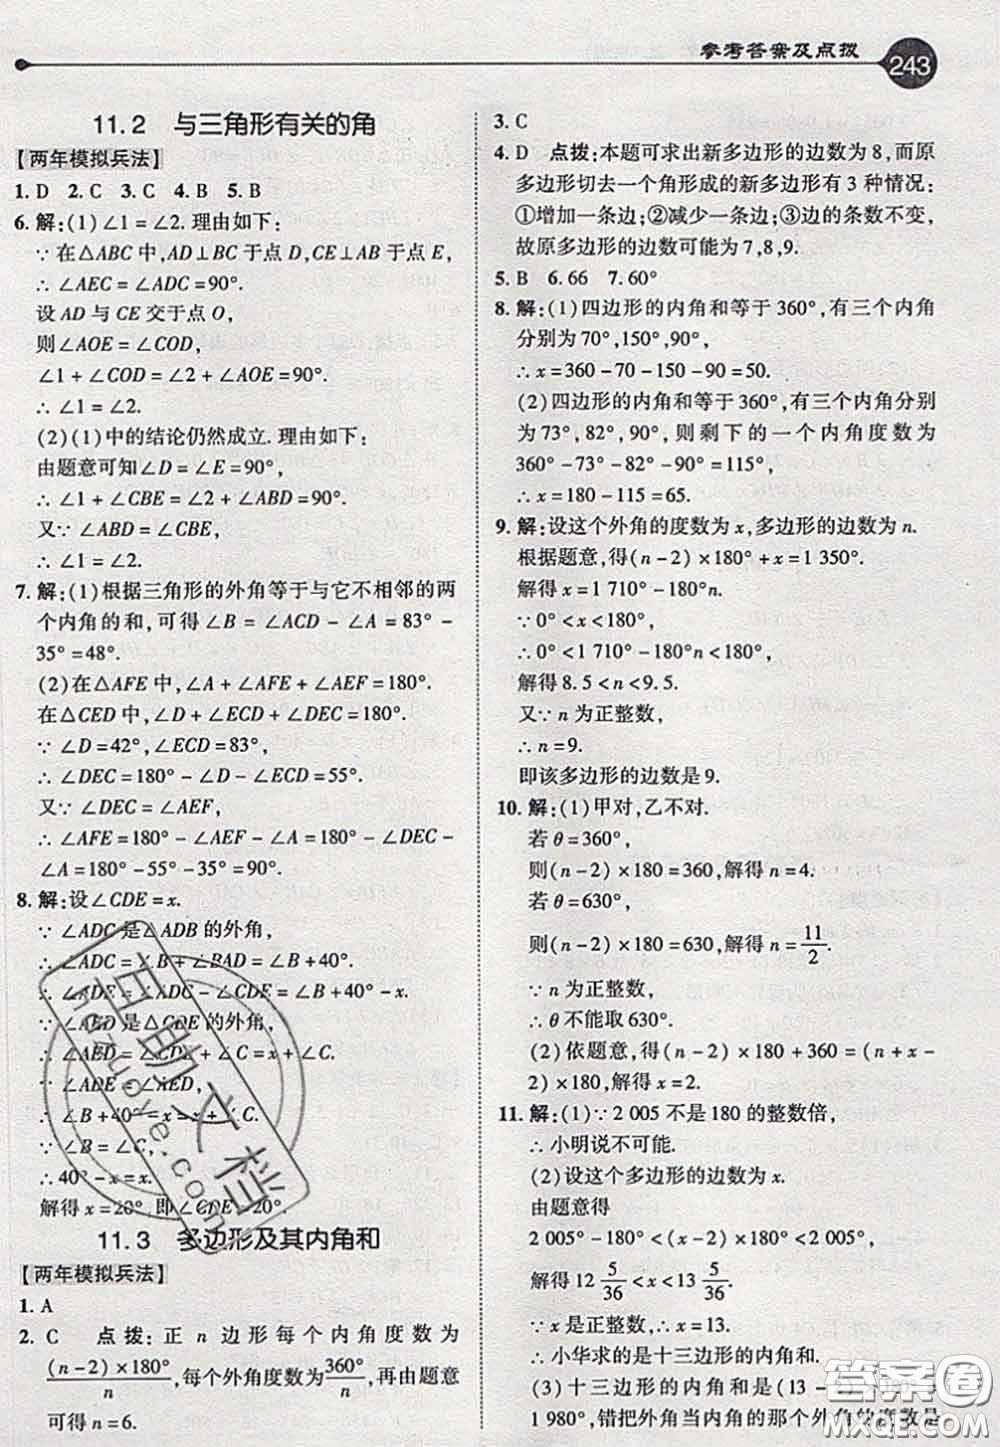 参考答案及点拨
243
11.2 与三角形有关的角
【两年模拟兵法】
1. D 2. C 3. C 4. B 5. B
6. 解:(1)∠1=∠2. 理由如下:
∵在△ABC中,AD⊥BC于点D,CE⊥AB于点E,
∴∠AEC=∠ADC=90°.
设AD与CE交于点O,
则∠AOE=∠COD,
∠1+∠COD=∠2+∠AOE=90°.
∴∠1=∠2.
(2)(1)中的结论仍然成立. 理由如下:
由题意可知∠D=∠E=90°,
∴∠1+∠CBE=∠2+∠ABD=90°.
又∵∠ABD=∠CBE,
∴∠1=∠2.
7. 解:(1)根据三角形的外角等于与它不相邻的两
个内角的和,可得∠B=∠ACD-∠A=83°-
35°=48°.
(2)在△AFE中,∠A+∠AFE+∠AEF=180°.
在△CED中,∠D+∠ECD+∠DEC=180°.
∵∠D=42°,∠ECD=83°,
∴∠DEC=180°-∠D-∠ECD=55°.
又∵∠DEC=∠AEF,
∴∠AFE=180°-∠AEF-∠A=180°-∠DEC-
∠A=180°-55°-35°=90°.
8. 解:设∠CDE=x.
∵∠ADC是△ADB的外角,
∴∠ADC=∠B+∠BAD=∠B+40°.
∴∠ADE=∠ADC-∠CDE=∠B+40°-x.
∵∠AED是△CDE的外角,
∴∠AED=∠CDE+∠C=x+∠C.
∵∠ADE=∠AED,
∴∠B+40°-x=x+∠C.
∵∠B=∠C,
∴40°-x=x.
解得x=20°,即∠CDE=20°.
11.3 多边形及其内角和
【两年模拟兵法】
1. A
2. C 点拨:正n边形每个内角度数为
(n-2)×180°/n,每个外角度数为360°/n,再由题意
可得n=6.
3. C
4. D 点拨:本题可求出新多边形的边数为8,而原
多边形切去一个角形成的新多边形有3种情况:
①增加一条边;②减少一条边;③边的条数不变,
故原多边形的边数可能为7,8,9.
5. B 6. 66 7. 60°
8. 解:(1)四边形的内角和等于360°,有三个内角
分别为70°,150°,90°,
∴x=360-70-150-90=50.
(2)四边形的内角和等于360°,有三个内角分别
为73°,82°,90°,则剩下的一个内角度数为
360°-73°-82°-90°=115°,
∴x=180-115=65.
9. 解:设这个外角的度数为x,多边形的边数为n.
根据题意,得(n-2)×180°+x=1 350°.
解得x=1 710°-180°n.
∵0°<x<180°,
∴0°<1 710°-180°n<180°,
解得8.5<n<9.5.
又∵n为正整数,
∴n=9.
即该多边形的边数是9.
10. 解:(1)甲对,乙不对.
若θ=360°,
则(n-2)×180=360,解得n=4.
若θ=630°,
则(n-2)×180=630,解得n=11/2.
∵n为正整数,
∴θ不能取630°.
(2)依题意,得(n-2)×180+360=(n+x-
2)×180,解得x=2.
11. 解:(1)∵2 005不是180的整数倍,
∴小明说不可能.
(2)设这个多边形的边数为x.
由题意得
2 005°-180°<(x-2)×180°<2 005°,
解得12 5/36<x<13 5/36.
∵x是正整数,∴x=13.
∴小华求的是十三边形的内角和.
(3)十三边形的内角和是(13-2)×180°=
1 980°,错把外角当内角的那个外角的度数是
百助文档
hazuoye.com
答案圈